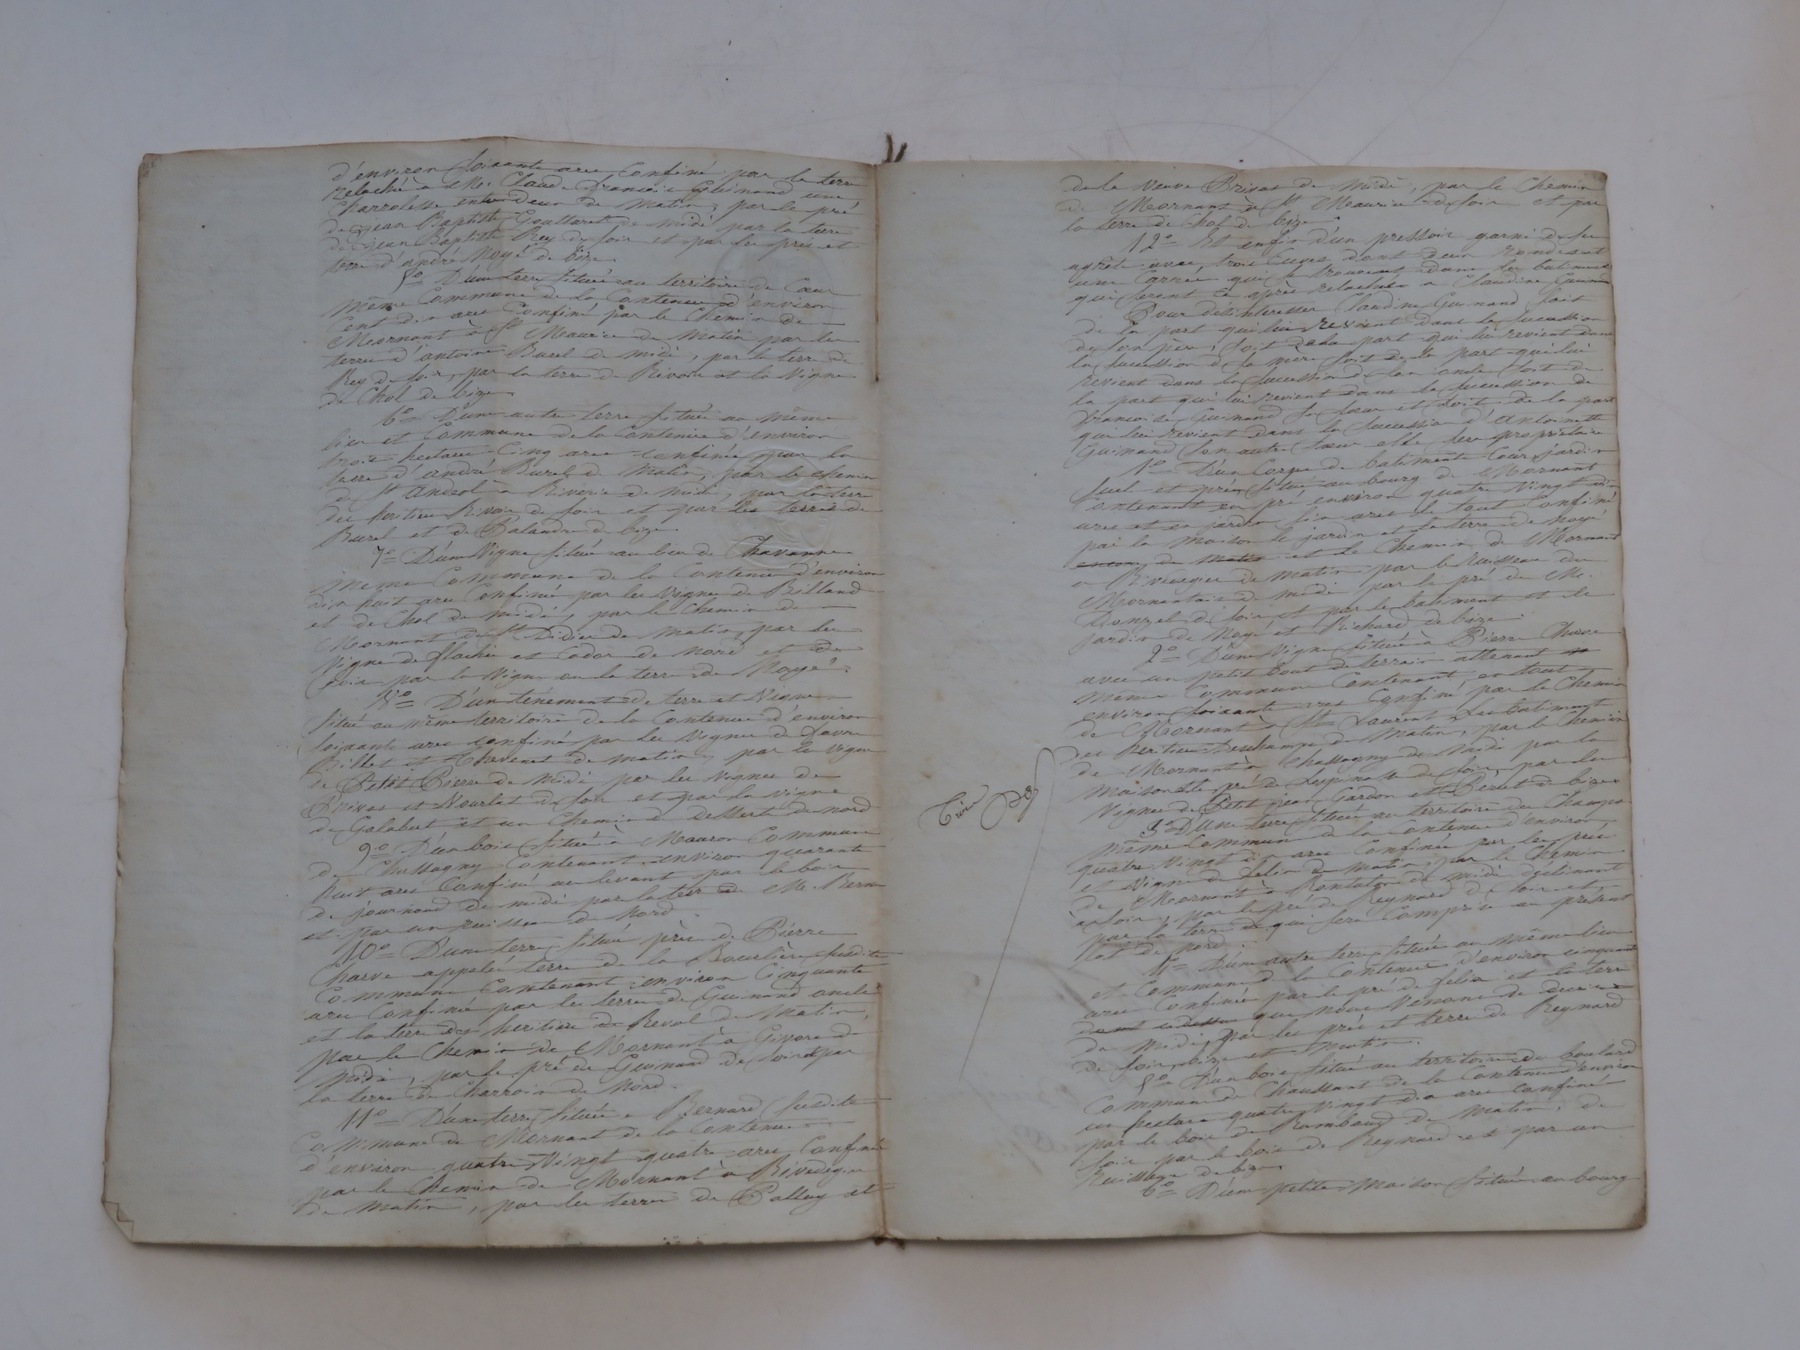 d'environ soixante ares confiné par la terre
relachée à Me. Claude françois Guinand une
Charrolesse entre deux de matin, par le pré
de jean Baptiste Gouttaret de midi par la terre
de jean Baptiste Rey de soir et par les prés et
terre d'andré Noyé de bize.
5o D'une terre située au territoire de Coeur
même Commune de la Contenue d'environ
Cent dix ares Confiné par le Chemin de
Mornant à St Maurice de matin par la
terre d'antoine Burel de midi, par la terre de
Rey de soir, par la terre de Rivoire et la vigne
de Chol de bize.
6o D'une autre terre située au même
lieu et Commune de la Contenue d'environ
trois hectares Cinq ares confinée par la
terre d'andré Burel de matin, par le chemin
de St andéol à Riverie de midi, par la terre
des héritiers Rivoire de soir et par les terres de
Burel et de Balandre de bize.
7o D'une Vigne située au lieu de Chavanne
même Commune de la Contenue d'environ
dix huit ares Confiné par les vignes de Billand
et de Chol de midi, par le Chemin de
Mornant à St Didier de matin, par les
Vigne de flachi et Cador de nord et de
soir par la Vigne ou la terre de Noyé.
8o D'un ténement de terre et Vigne
situé au même territoire de la Contenue d'environ
soixante ares confiné par les Vignes de Favre
Billet et Thevenet de matin, par la vigne
de Petit Pierre de midi par les vignes de
Brivas et Nourlat de soir et par la vigne
de Galabert et un Chemin de desserte de nord
9o D'un bois situé à Mauron Commune
de Chassagny Contenant environ quarante
huit ares Confiné au levant par le bois
de journoud de midi par la terre de M. Berne
et par un ruisseau de Nord.
10o D'une terre située près de Pierre
Charve appelée terre de la Bourlière susdite
Commune Contenant environ Cinquante
ares Confiné par les terres de Guinand oncle
et la terre des heritiers de Revol de Matin,
par le Chemin de Mornant à Givors de
midi, par le pré du Guinand de soir et par
la terre de Charroin de Nord.
11o D'une terre située à Bernard susdite
Commune de Mornant de la Contenue
d'environ quatre Vingt quatre ares Confiné
par le Chemin de Mornant à Rivedegier
de Matin, par les terres de Palluy et
de la Veuve Brivas de midi, par le Chemin
de Mornant à St Maurice de soir et par
la terre de Chol de bize.
12o Et enfin d'un pressoir garni de ses
agrêts avec trois Cuves dont deux rondes et
une Carrée qui se trouvent dans les batiments
qui seront ci après relachés à Claudine Guinand
Pour desintéresser Claudine Guinand soit
de la part qui lui revient dans la succession
de son père, soit de la part qui lui revient dans
la succession de sa mère soit de la part qui lui
revient dans la succession de son oncle soit de
la part qui lui revient dans la succession de
françoise Guinand sa soeur et soit de la part
qui lui revient dans la succession d'antoinette
Guinand son autre soeur elle sera propriétaire
1o D'un Corps de batiments Cour jardin
seul et pré situé au bourg de Mornant
Contenant en pré environ quatre Vingt dix
ares et en jardin six ares le tout Confiné
par la maison le jardin et la terre de Noyé
de matin et le Chemin de Mornant
à Rivedegier de matin par le ruisseau du
Mornantais de midi par le pré de Me.
Donzel de soir et par le batiment et le
jardin de Noyé et Richard de bize.
2o D'une Vigne située à Pierre Charve
avec un petit bout de terrain attenant
même Commune Contenant en tout
environ soixante ares Confiné par le Chemin
de Mornant à St Laurent les batiments
des héritiers Deschamps de Matin, par le Chemin
de Mornant à Chassagny de Midi par la
maison et le pré de Lespinasse de soir, par les
Vignes de Petit jean Gardon et Péret de bize
3o D'une terre située au territoire du Champ
même Commune de la contenue d'environ
quatre Vingt dix ares Confinée par les prés
et vigne de felix de matin, par le Chemin
de Mornant à Rontalon de midi déclinant
à soir, par le pré de Reynard de soir et
par la terre qui sera Comprise au présent
lot de nord.
4o D'une autre terre située au même lieu
et Commune de la Contenue d'environ cinquante
ares Confinée par le pré de felix et la terre
que nous Venons de décrire
de Midi par les prés et terre de Reynard
de soir, bize et matin.
5o D'un bois situé au territoire du boulard
Commune de Chaussant de la Contenue d'environ
un hectare quatre Vingt dix ares confiné
par le bois de Rambaud de Matin, de
soir par le bois de Reynard et par un
Ruisseau de bize.
6o D'une petite Maison située au bourg